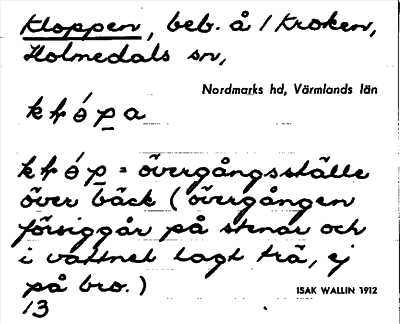 Kloppen, beb. å / Kroken,
Holmedals sn,
Nordmarks hd, Värmlands län
övergångsställe
över bäck (övergången
försiggår på stenar och
i vattnet lagt trä, ej
på bro.)
ISAK WALLIN 1912
13